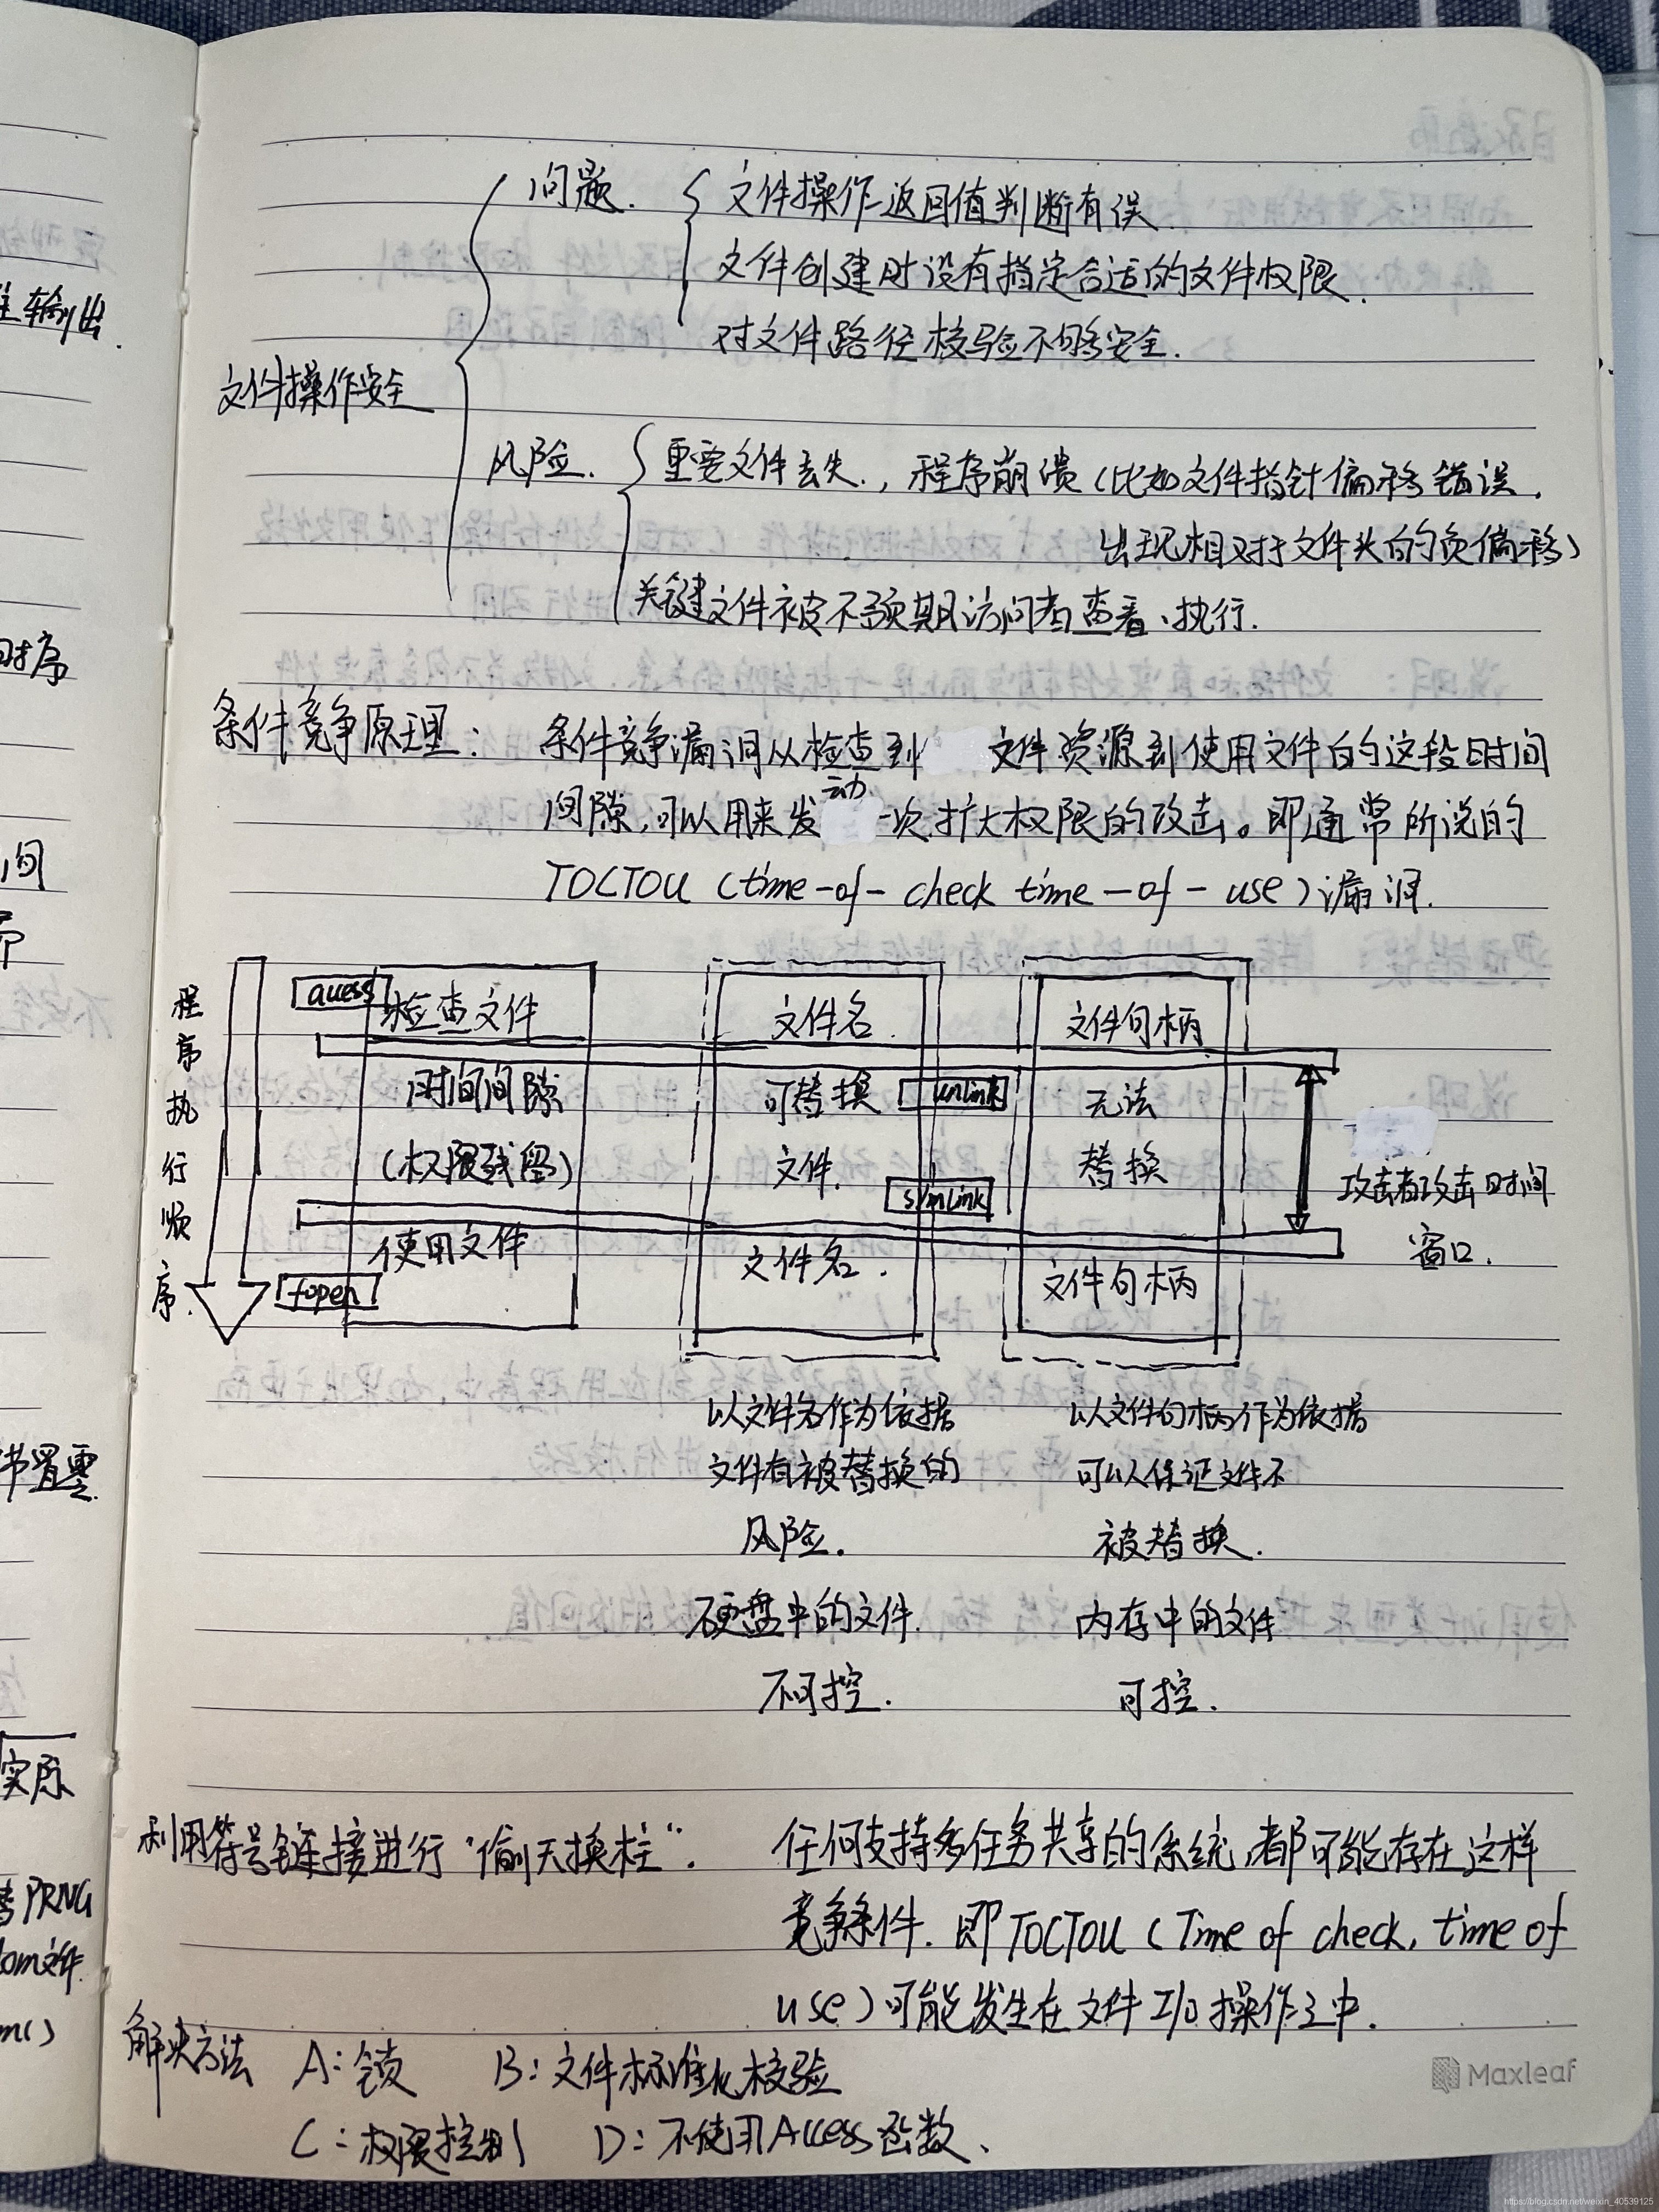 问题.
文件操作返回值判断有误.
文件创建时没有指定合适的文件权限.
对文件路径校验不够安全.
文件操作安全
风险.
重要文件丢失., 程序崩溃(比如文件指针偏移错误.
出现相对于文件头的负偏移)
关键文件被不预期访问者查看、执行.
条件竞争原理:
条件竞争漏洞从检查到 文件资源到使用文件的这段时间
间隙,可以用来发动一次扩大权限的攻击。即通常所说的
TOCTOU (time-of-check time-of-use)漏洞.
程序执行顺序.
检查文件
文件名.
文件句柄
时间间隙
(权限残留)
可替换
文件.
unlink
symlink
无法
替换
攻击者攻击时间
窗口.
使用文件
fopen
文件名.
文件句柄
以文件名作为依据
文件有被替换的
风险.
硬盘中的文件.
不可控.
以文件句柄作为依据
可以保证文件不
被替换.
内存中的文件
可控.
利用符号链接进行"偷天换柱".
任何支持多任务共享的系统,都可能存在这样
竞争条件. 即TOCTOU (Time of check, time of
use)可能发生在文件I/O操作之中.
解决方法 A:锁 B:文件标准化校验
C:权限控制 D:不使用Access函数、
Maxleaf
输出.
时序
间
节置零.
实际
PRNG
om文件.
m()
https://blog.csdn.net/weixin_40539125